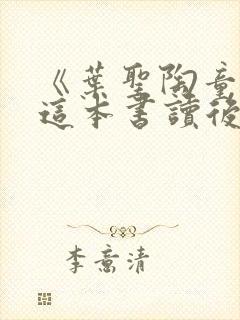 《葉聖陶童
這本書讀後
李意清